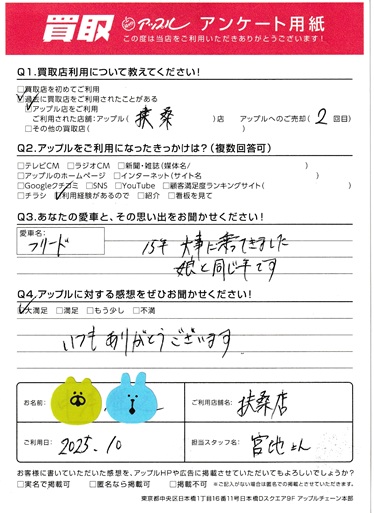 買取 アップル アンケート用紙
この度は当店をご利用いただきありがとうございます!
Q1.買取店利用について教えてください!
□買取店を初めてご利用
☑過去に買取店をご利用されたことがある
☑アップル店をご利用
ご利用された店舗:アップル( 扶桑 )店 アップルへのご売却( 2 回目)
□その他の買取店( )
Q2.アップルをご利用になったきっかけは?(複数回答可)
□テレビCM □ラジオCM □新聞・雑誌(媒体名/ )
□アップルのホームページ □インターネット(サイト名 )
□Googleクチコミ □SNS □YouTube □顧客満足度ランキングサイト( )
□チラシ ☑利用経験があるので □紹介 □看板を見て
Q3.あなたの愛車と、その思い出をお聞かせください!
愛車名:
フリード
15年 大事に乗ってきました
娘と同じ年です
Q4.アップルに対する感想をぜひお聞かせください!
☑大満足 □満足 □もう少し □不満
いつも ありがとうございます
お名前: ご利用店舗名: 扶桑店
ご利用日: 2025.10 担当スタッフ名: 宮地さん
お客様に書いていただいた感想を、アップルHPや広告に掲載させていただいてもよろしいでしょうか?
□実名で掲載可 □匿名なら掲載可 □掲載不可 ※ご記入がない場合は匿名での掲載とさせていただきます。
東京都中央区日本橋1丁目16番11号日本橋Dスクエア9F アップルチェーン本部